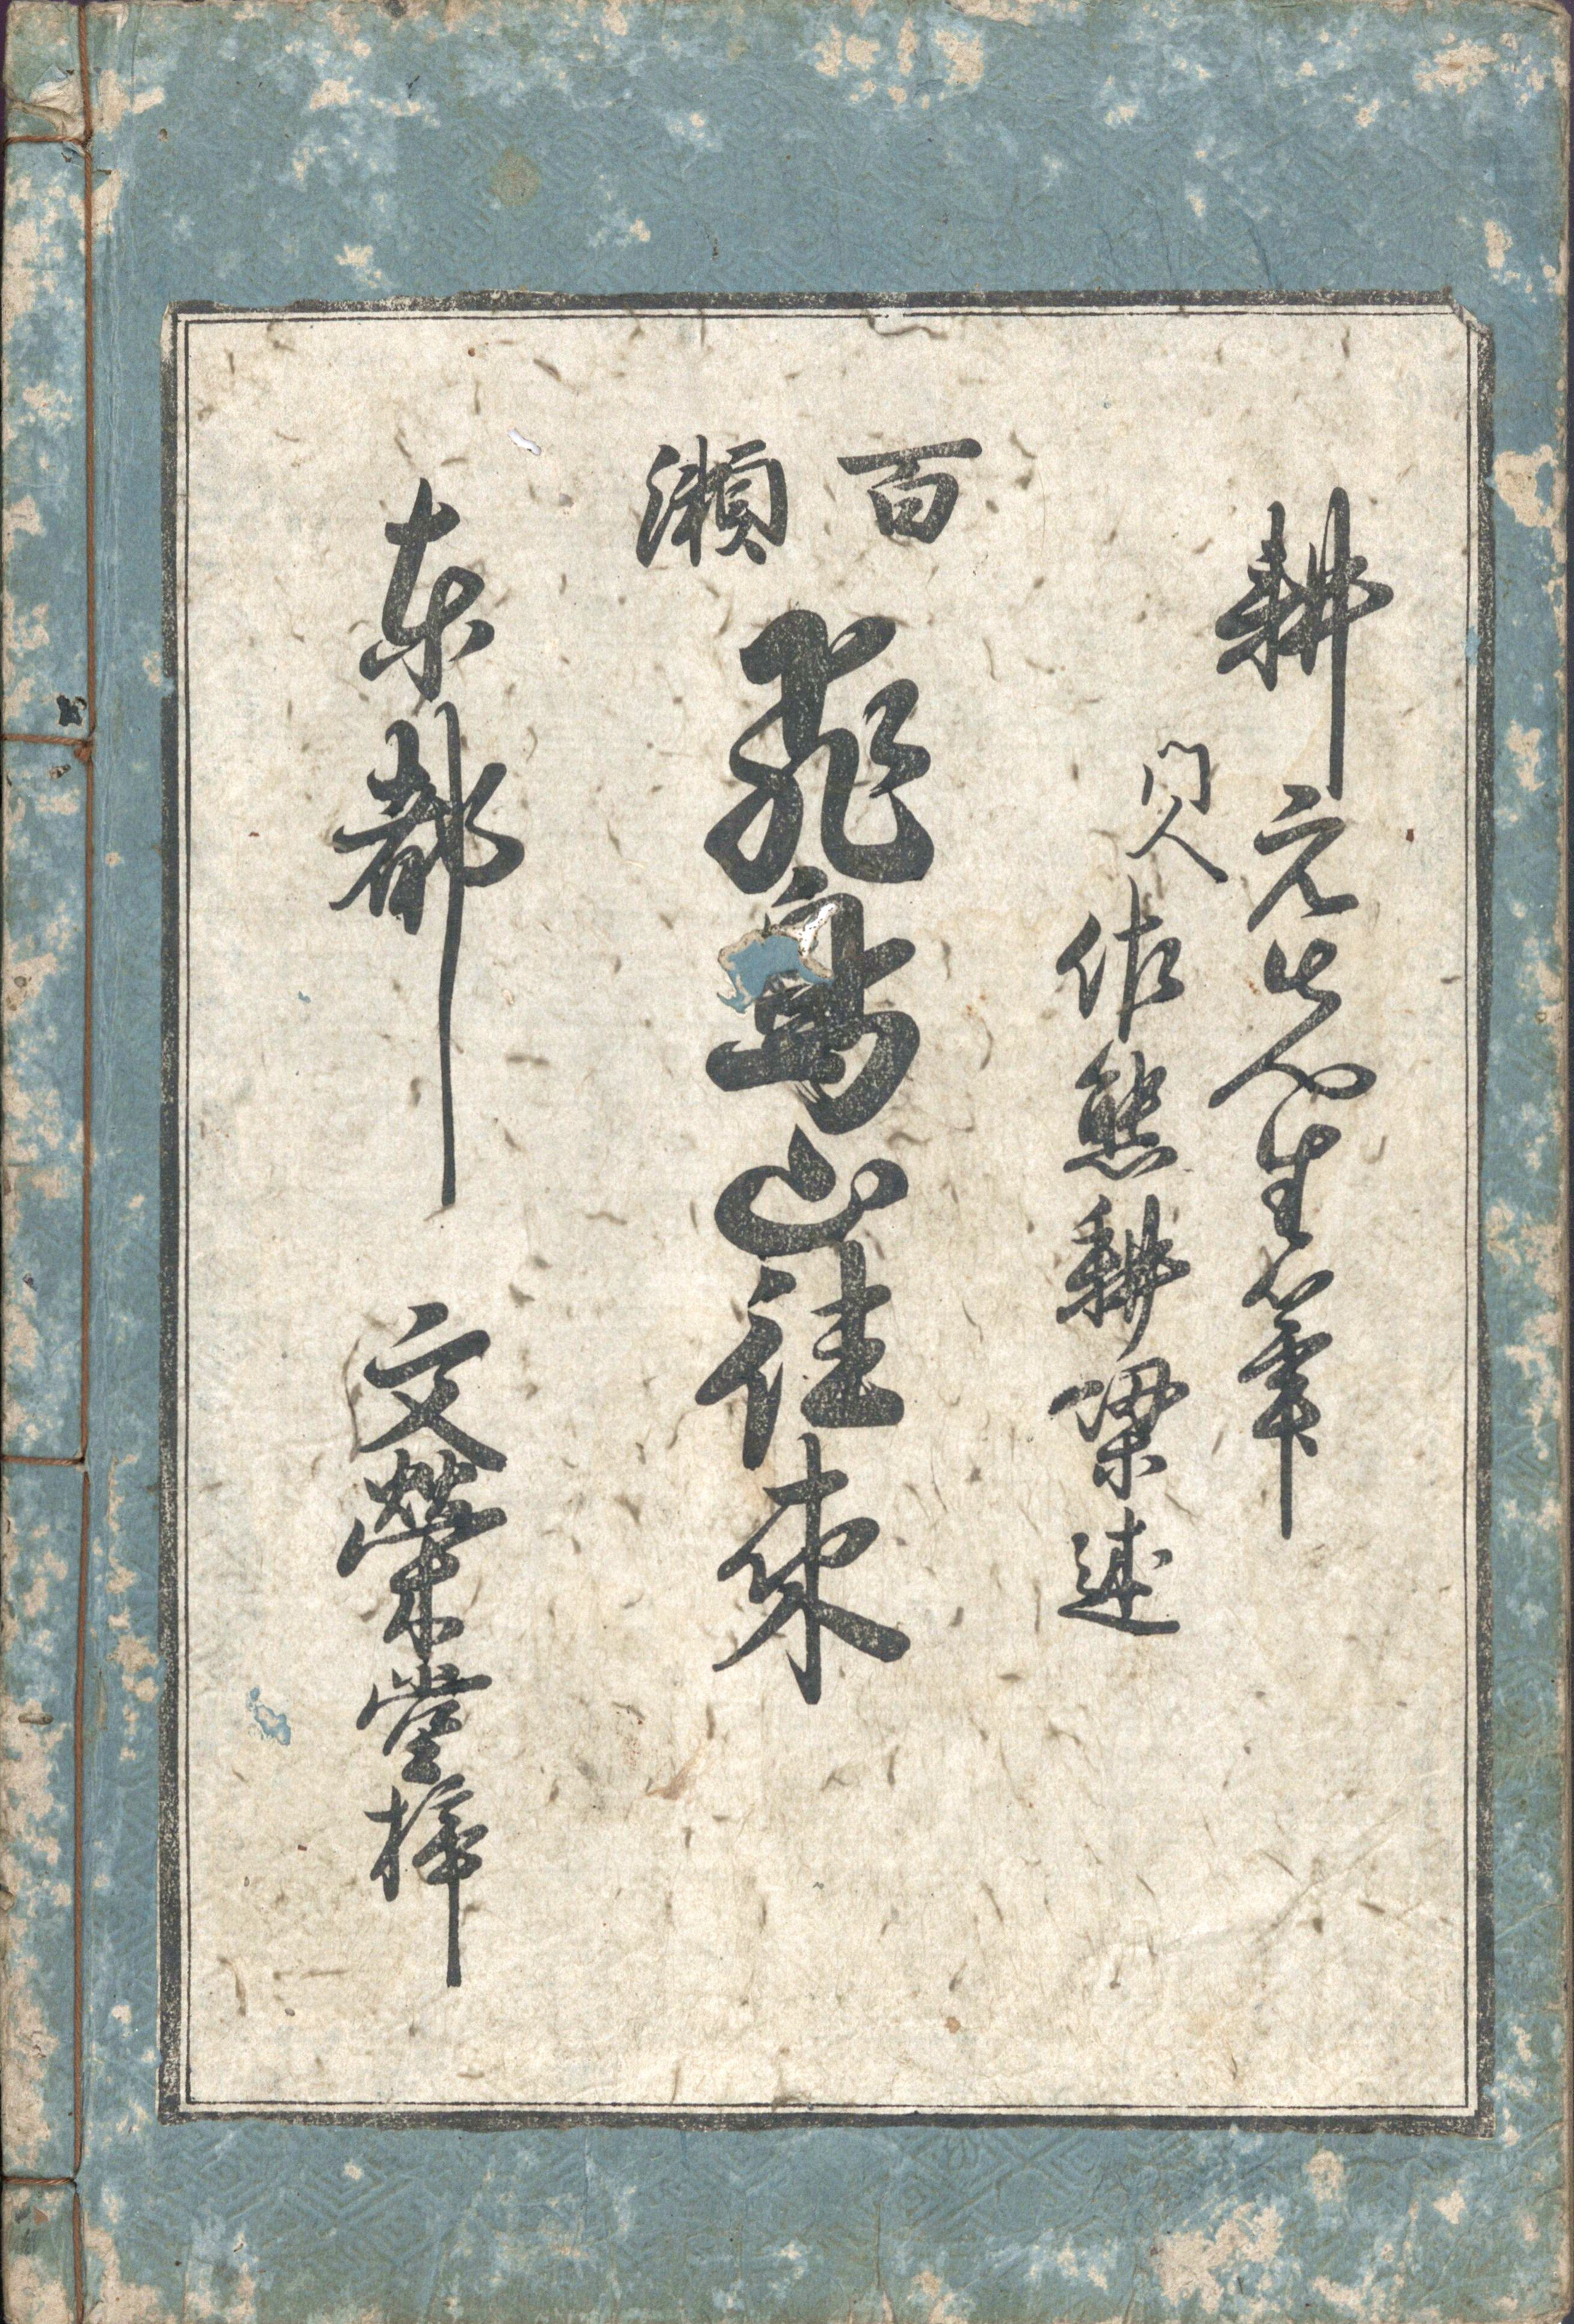 耕元先生筆
門人 佐熊耕梁述
百瀬
飛鳥山往来
東都 文榮堂梓